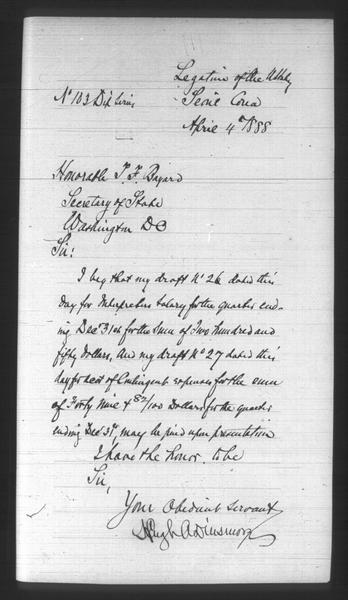 Legation of the U States
Seoul Corea
No 103 Dip Series
April 4th 1888
Honorable T. F. Bayard
Secretary of State
Washington DC
Sir:
I beg that my draft No 26 dated this
day for Interpreters Salary for the quarter end-
ing Dec 31st for the sum of Two hundred and
fifty Dollars, and my draft No 27 dated this
day for acct of Contingent expenses for the sum
of Forty Nine & 82/100 Dollars for the quarter
ending Dec 31, may be paid upon presentation
I have the honor to be
Sir,
Your Obedient Servant
Hugh A Dinsmore